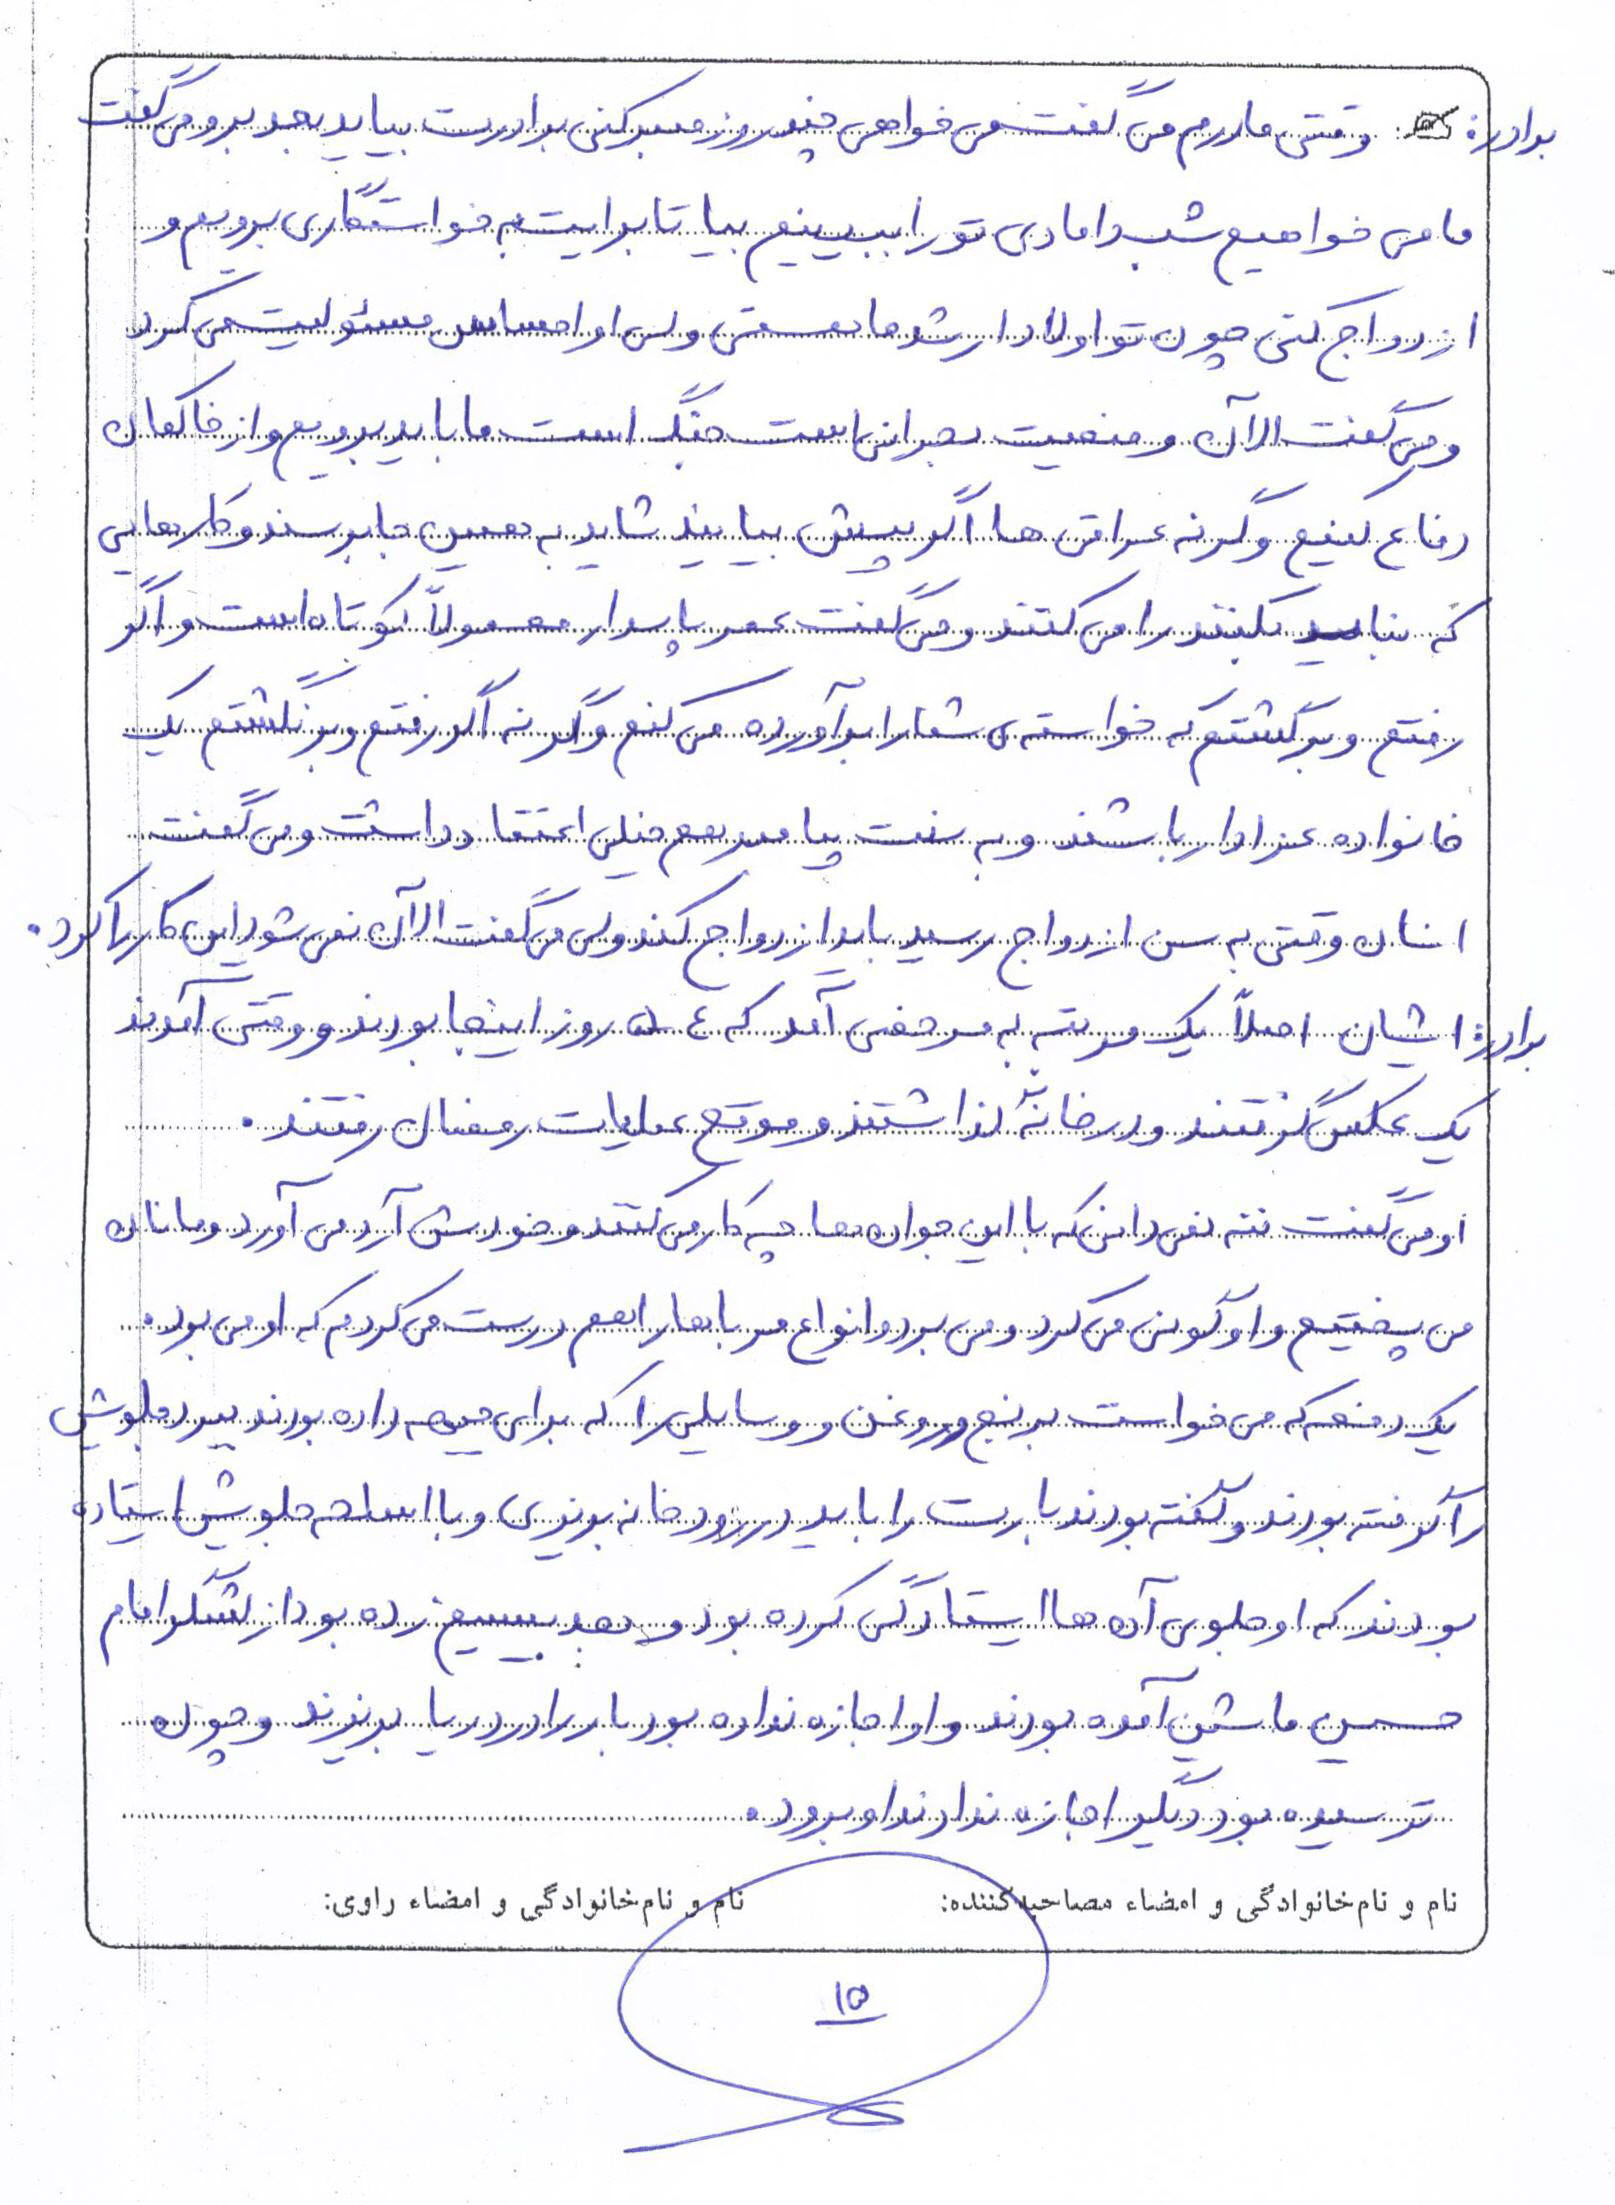 برادر: وقتی مادرم می گفت نمی خواهی چند روز صبر کنی برادرت بیاید بعد برو می گفت
ما می خواهیم شب دامادی تو را ببینیم بیا تا برایت به خواستگاری برویم و
ازدواج کنی چون تو اولاد ارشد ما هستی ولی او احساس مسئولیت می کرد
و می گفت الاآن وضعیت بحرانی است جنگ است ما باید برویم و از خاکمان
دفاع کنیم وگرنه عراقی ها اگر پیش بیایند شاید به همین جا برسند و کارهایی
که نباید بکنند را می کنند و می گفت عمر پاسدار معمولاً کوتاه است و اگر
رفتم و برگشتم که خواسته ی شما را برآورده می کنم وگرنه اگر رفتم و برنگشتم یک
خانواده عزادار باشند و به سنت پیامبر هم خیلی اعتقاد داشت و می گفت
انسان وقتی به سن ازدواج رسید باید ازدواج کند ولی می گفت الاآن نمی شود این کار را کرد.
برادر: ایشان اصلاً یک مرتبه به مرخصی آمد که ٤ ۵ روز اینجا بودند و وقتی آمدند
یک عکس گرفتند و در خانه گذاشتند و موقع عملیات رمضان رفتند.
او می گفت ننه نمی دانی که با این جوان ها چه کار می کنند و خودش آرد می آورد و ما نان
می پختیم و او گونی می کرد و می برد و انواع مرباها را هم درست می کردم که او می برد.
یک دفعه که می خواست برنج و روغن و وسایلی را که برای جبهه داده بودند ببرد جلویش
را گرفته بودند و گفته بودند بارت را باید در رودخانه بریزی و با اسلحه جلویش ایستاده
بودند که او جلوی آن ها ایستادگی کرده بود و بعد بیسیم زده بود از لشگر امام
حسین ماشین آمده بودند و او اجازه نداده بود بار را در دریا بریزند و چون
ترسیده بود دیگر اجازه ندادند او برود.
نام و نام خانوادگی و امضاء مصاحبه کننده: نام و نام خانوادگی و امضاء راوی:
۱۵